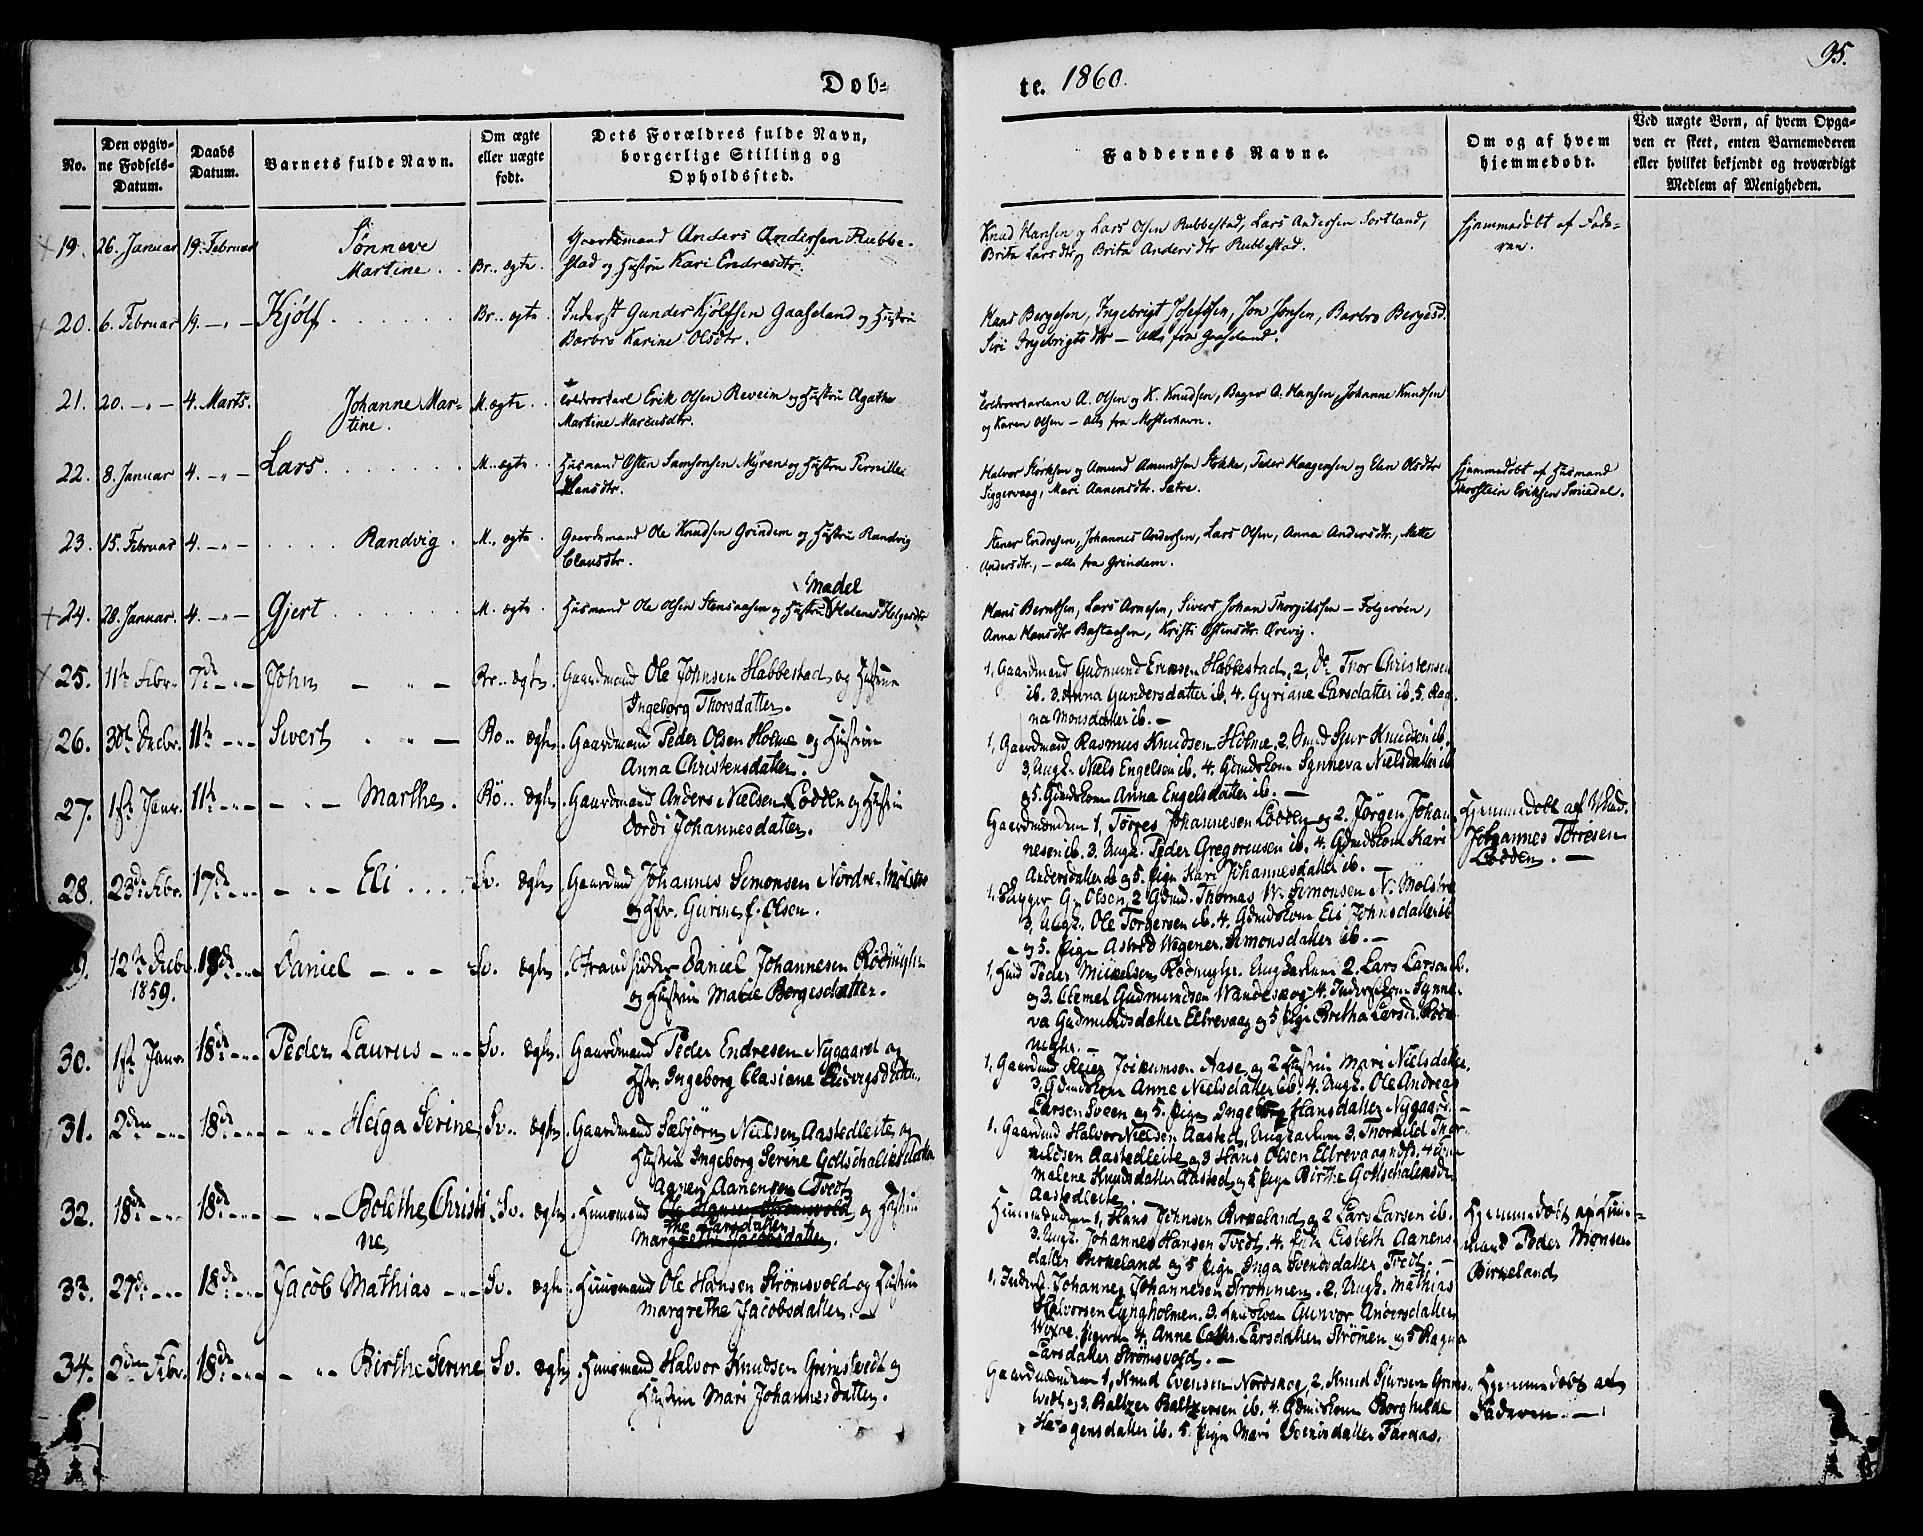 95.
Døb-
te. 1860.
No.
Den opgiv-
ne Fødsels-
Datum.
Daabs
Datum.
Barnets fulde Navn.
Om ægte
eller uægte
født.
Dets Forældres fulde Navn,
borgerlige Stilling og
Opholdssted.
Faddernes Navne.
Om og af hvem
hjemmedøbt.
Ved uægte Børn, af hvem Opga-
ven er skeet, enten Barnemoderen
eller hvilket bekjendt og troværdigt
Medlem af Menigheden.
19. 26. Januar 19. Februar Sønneve
Martine. Br. ægte.
Gaardmand Anders Andersen Rubbe-
stad og Hustru Kari Endresdtr.
Knud Hansen og Lars Olsen Rubbestad, Lars Andersen Sortland,
Brita Larsdtr og Brita Andersdtr Rubbestad.
Hjemmedøbt af Fade-
ren.
20. 6. Februar 19. –„– Kjølf Br. ægte.
Inderst Gunder Kjølfsen Gaaseland og Hustru
Barbro Karine Olsdtr.
Hans Bergesen, Ingebrigt Josefsen, Jon Jonsen, Barbro Bergesd.
Siri Ingebrigtsdtr – alle fra Gaaseland.
21. 20. –„– 4. Marts. Johanne Mar-
tine. M. ægte.
Erik Olsen Reveim og Hustru Agathe
Martine Marcusdtr.
A. Olsen og K. Knudsen, Bager A. Hansen, Johanne Knudsen
og Karen Olsen – alle fra Mosterhavn.
22. 8. Januar 4. –„– Lars M. ægte.
Husmand Østen Samsonsen Myren og Hustru Pernille
Hansdtr.
Halvor Størksen og Amund Amundsen Stokke, Peder Haagensen og Elen Olsdtr
Siggervaag, Mari Aanensdtr. Sætre.
Hjemmedøbt af Husmand
Thorstein Eriksen Smedal.
23. 15. Februar 4. –„– Randvig. M. ægte
Gaardmand Ole Knudsen Grindem og Hustru Randvig
Clausdtr.
Stener Endresen, Johannes Andersen, Lars Olsen, Anna Andersdtr., Mette
Andersdtr., – alle fra Grindem.
24. 28. Januar. 4. –„– Gjert M. ægte.
Madel
Husmand Ole Olsen Stensaasen og Hustru Helene Helgesdtr
Hans Berntsen, Lars Arnesen, Sivert Johan Thorgilssen – Folgerøen,
Anna Hansdtr Bastaasen, Kristi Østensdtr. Ørevig.
25. 11te Febr. 7de –„– John Br. ægte.
Gaardmand Ole Johnsen Habbestad og Hustru
Ingeborg Thorsdatter.
1, Gaardmand Gudmund Ericsen Habbestad, 2, do Thor Christensen
ib. 3. Anna Gundersdatter ib. 4. Gyriane Larsdatter ib. 5. Rag-
na Monsdatter ib. –
26. 30te Decbr. 11te –„– Sivert Rö. ægte.
Gaardmand Peder Olsen Holme og Hustru
Anna Christensdatter.
1, Gaardmand Rasmus Knudsen Holme, 2, Gmd Sjur Knudsen ib.
3, Ungk. Niels Engelsen ib. 4. Gmdskone Synneva Nielsdatter ib.
og 5. Gmdskone Anna Engelsdatter ib. –
27. 1ste Janr. 11te –„– Marthe. Rö. ægte.
Gaardmand Anders Nielsen Lodden og Hustru
Gordi Johannesdatter.
Gaardmændene 1, Torres Johannesen Lodden og 2. Jørgen Johan-
nesen ib. 3. Ungk. Peder Gregoriusen ib. 4. Gmdskone Kari
Andersdatter ib. og 5. Pigen Kari Johannesdatter ib. –
Hjemmedøbt af
Johannes Torresen
Lodden. –
28. 23de Febr. 17de –„– Eli Sv. ægte
Gaardmd Johannes Simonsen Nordre-Mølster
og Hstr. Gurine f. Olsen.
1, G. Olsen, 2 Gmd. Thomas W. Simonsen N. Mølstre
3. Ungk. Ole Torgersen ib. 4. Gmdskone Eli Johnsdatter ib.
og 5. Pigen Astrid Wegener Simonsdatter ib. –
12te Decbr.
1859. 18de –„– Daniel Sv. ægte
Strandsidder Daniel Johannesen Rødmyhr
og Hustru Malie Børgesdatter.
1, Peder Mikkelsen Rødmyhr. Ungkarlene 2. Lars Larsen ib.
og 3. Clemet Gudmundsen Wandeskog 4. Inderstkone Synne-
va Gudmundsdatter Ellrevaag og 5 Pige Britha Larsd. Rød-
myhr. –
30. 1ste Janr. 18de –„– Peder Laurus Sv. ægte.
Gaardmand Peder Endresen Nygaard og
Hstr. Ingeborg Clasiane Ludvigsdatter.
1, Gaardmd Reier Joikumsen Aase og 2 Hustru Mari Nielsdatter
3. Gmdskone Anne Nielsdatter ib. 4. Ungk. Ole Andreas
Larsen Sveen og 5. Pigen Ingeborg Hansdatter Nygaard. –
31. 2den –„– 18de –„– Helga Serine Sv. ægte.
Gaardmand Sæbjørn Nielsen Aastedleite og
Hustru Ingeborg Serine Gottschalksdatter
1. Gaardmd Halvor Nielsen Aasted, Ungkarlene 3. Thorkild Thor-
kildsen Aastedleite og 3 Hans Olsen Ellrevaag
malene Knudsdatter Aasted og 5 Pige Birthe Gottschalksdr
Aastedleite
32. 18de –„– 18de –„– Bolethe Christi-
ne Sv. ægte
Aanen Aanensen Tvedt
Huusmand Ole Hansen Strømsvold og Hustru
the Larsdatter
Margrethe Jacobsdatter.
Huusmændene 1, Hans Johnsen Birkeland og 2 Lars Larsen ib.
3. Ungk. Johannes Hansen Tvedt. 4. Enke Lisbeth Aanens-
datter Birkeland og 5 Pigen Inga Svendsdatter Tvedt. –
Hjemmedøbt af Huus-
mand Peder Monsen
Birkeland
33. 27de –„– 18de –„– Jacob Mathias Sv. ægte
Huusmand Ole Hansen Strømsvold og Hustru
Margrethe Jacobsdatter. –
1, Inderst Johannes Johannesen Strømmen. 2, Ungk. Mathias
Halvorsen Lyngholmen. 3. Gunvor Andersdatter
Pigerne 4. Anne Cathr. Larsdatter Strømen og 5 Ragna
Larsdatter Strømsvold. –
34. 2den Febr. 18de –„– Birthe Serine Sv. ægte
Huusmand Halvor Knudsen Grimstvedt og
Hustru Mari Johannesdatter.
Gaardmændene 1, Knud Evensen Nordskog, 2. Knud Sjursen Grims-
tvedt og 3. Baltzer Baltzersen ib. 4. Gmdskone Borghilde
Haagensdatter ib. 5. Pigen Mari Svendsdatter Tardas.
Hjemmedøbt af
Faderen. –